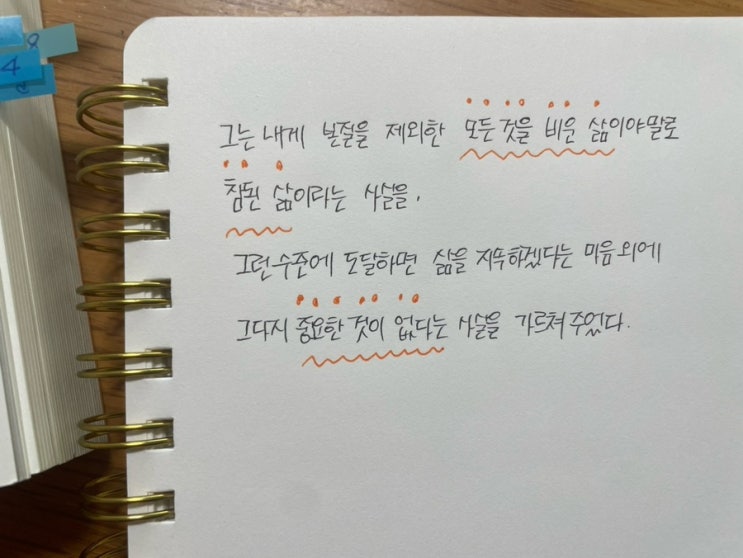 그는 내게 본질을 제외한 모든 것을 비운 삶이야말로
참된 삶이라는 사실을,
그런 수준에 도달하면 삶을 지속하겠다는 마음 외에
그다지 중요한 것이 없다는 사실을 가르쳐 주었다.
4